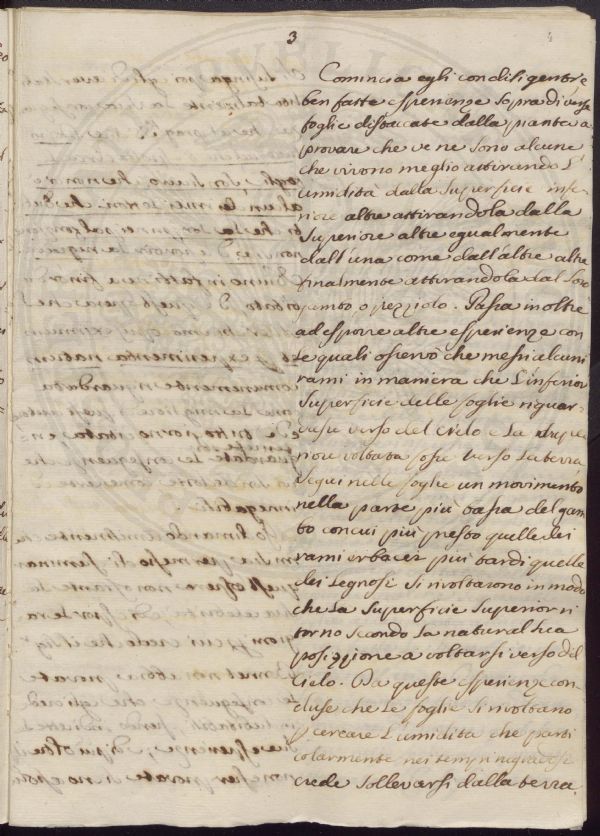 3
4
Comincia egli con diligenti, e
ben fatte esperienze sopra diverse
foglie distaccate dalla pianta a
provare che ve ne sono alcune
che vivono meglio attirando L'
umidità dalla superficie infe-
riore altre attirandola dalla
superiore altre egualmente
dall'una come dall'altre altre
finalmente attirandola dal Loro
gambo o pezziolo. Passa inoltre
ad esporre altre esperienze con
le quali osservò che messi alcuni
rami in maniera che L'inferior
superficie delle foglie riguar-
dasse verso del Cielo e La supe-
riore voltata fosse verso La terra
seguì nelle foglie un movimento
nella parte più bassa del gam
bo con cui più presto quelle dei
rami erbacei più tardi quelle
dei Legnosi si rivoltarono in modo
che La superficie superior ri
tornò secondo La natural sua
posizzione a voltarsi verso del
Cielo. Da queste esperienze con-
cluse che Le foglie si rivoltano
p cercare L'umidità che parti
colarmente nei tempi rugiadosi
crede sollevarsi dalla terra.